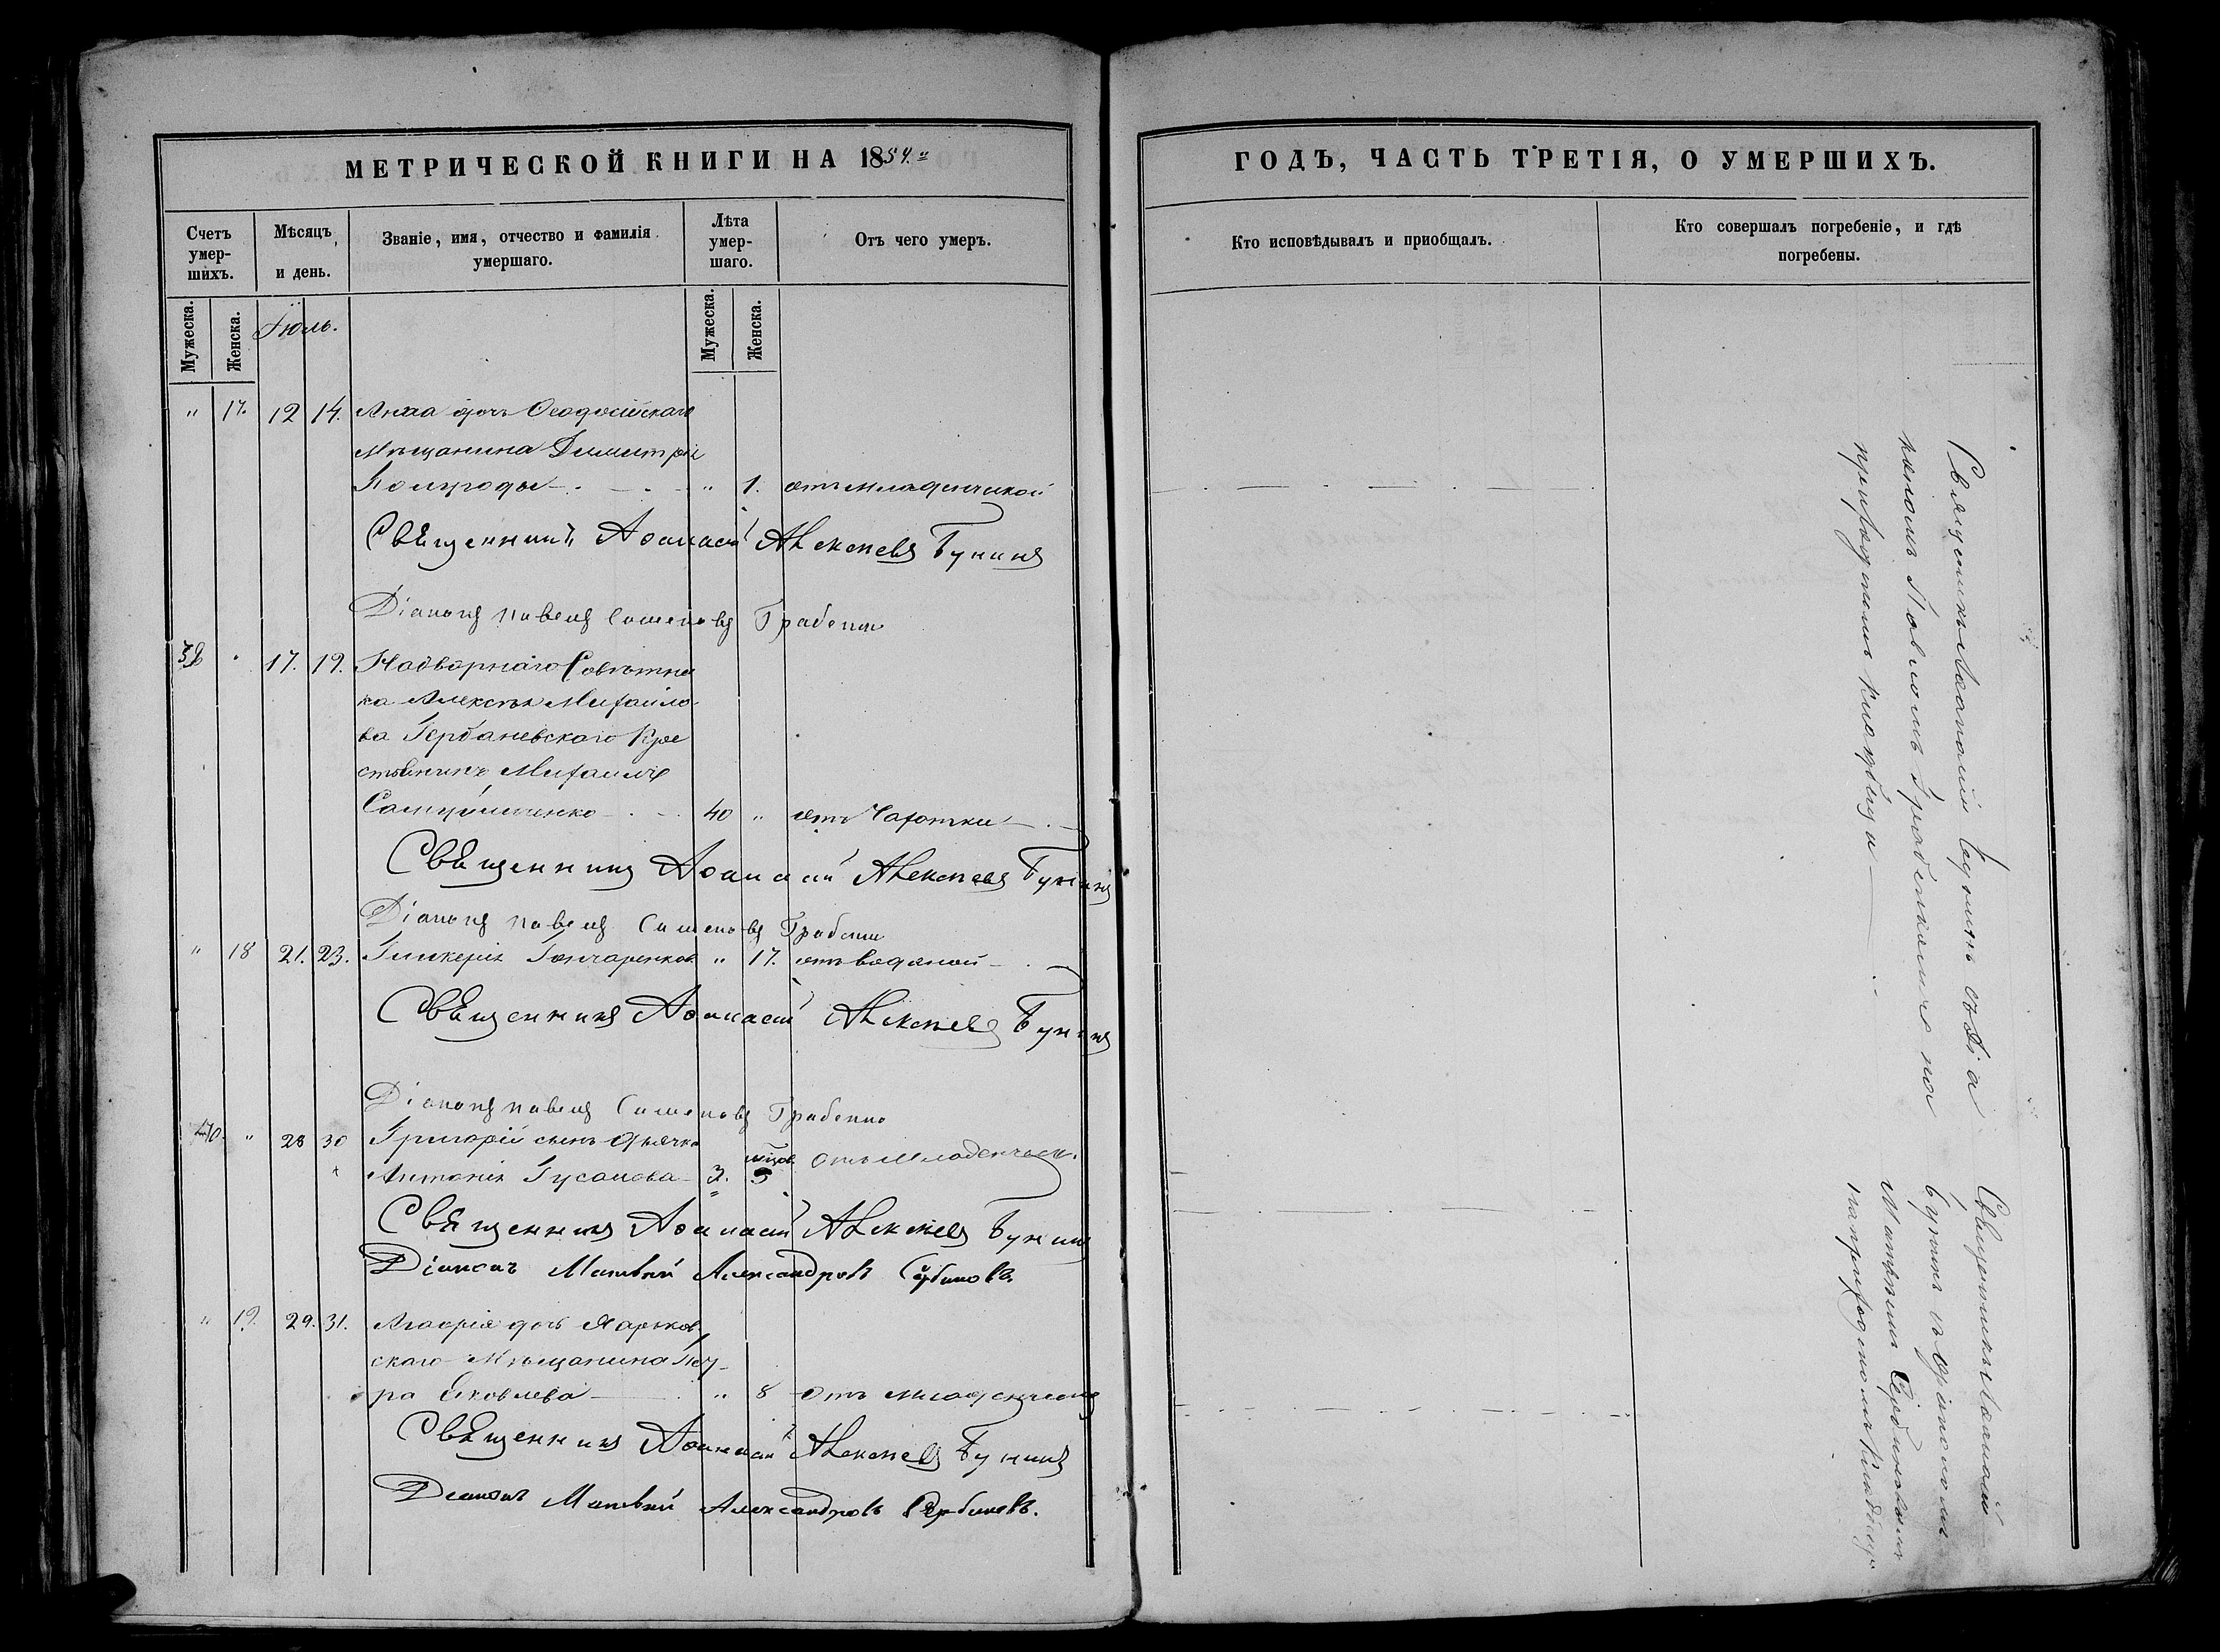 МЕТРИЧЕСКОЙ КНИГИ НА 1854.
Счетъ умер-шихъ.
Мѣсяцъ и день.
Званіе, имя, отчество и фамилія умершаго.
Лѣта умер-шаго.
Отъ чего умеръ.
Мужеска.
Женска.
Іюль.
Мужеска.
Женска.
" 17. 12 14. Анна дочь Ѳеодосійскаго
Мѣщанина Димитрія
" 1. отъ младенческой
Священникъ Аѳанасій Алексѣевъ Бунинъ
Діаконъ Павелъ Семеновъ Грабенко
38 " 17. 19. Надворнаго Совѣтни
ка Алексѣя Михайло
ва Гербаневскаго Кре
стьянинъ Михаилъ
40 " отъ Чахотки
Священникъ Аѳанасій Алексѣевъ Бунинъ
Діаконъ Павелъ Семеновъ Грабенко
" 18 21. 23. Гликерія Гончаренкова " 17. отъ водяной
Священникъ Аѳанасій Алексѣевъ Бунинъ
Діаконъ Павелъ Семеновъ Грабенко
40. " 28 30 Григорій сынъ дьячка
Антонія Гусакова 3. отъ младенческ.
Священникъ Аѳанасій Алексѣевъ Бунинъ
Діаконъ Матвѣй Александровъ Сербиновъ
" 19. 29. 31. дочь Харьков
скаго Мѣщанина Пет
ра Яковлева " 8 отъ младенческой
Священникъ Аѳанасій Алексѣевъ Бунинъ
Діаконъ Матвѣй Александровъ Сербиновъ.
ГОДЪ, ЧАСТЬ ТРЕТІЯ, О УМЕРШИХЪ.
Кто исповѣдывалъ и приобщалъ.
Кто совершалъ погребеніе, и гдѣ погребены.
Священникъ Аѳанасій Бунинъ съ діа
кономъ Павломъ Грабенкомъ на
приходскомъ кладбищѣ
Священникъ Аѳанасій
Бунинъ съ діакономъ
Матвѣемъ Сербиновымъ
на приходскомъ кладбищѣ